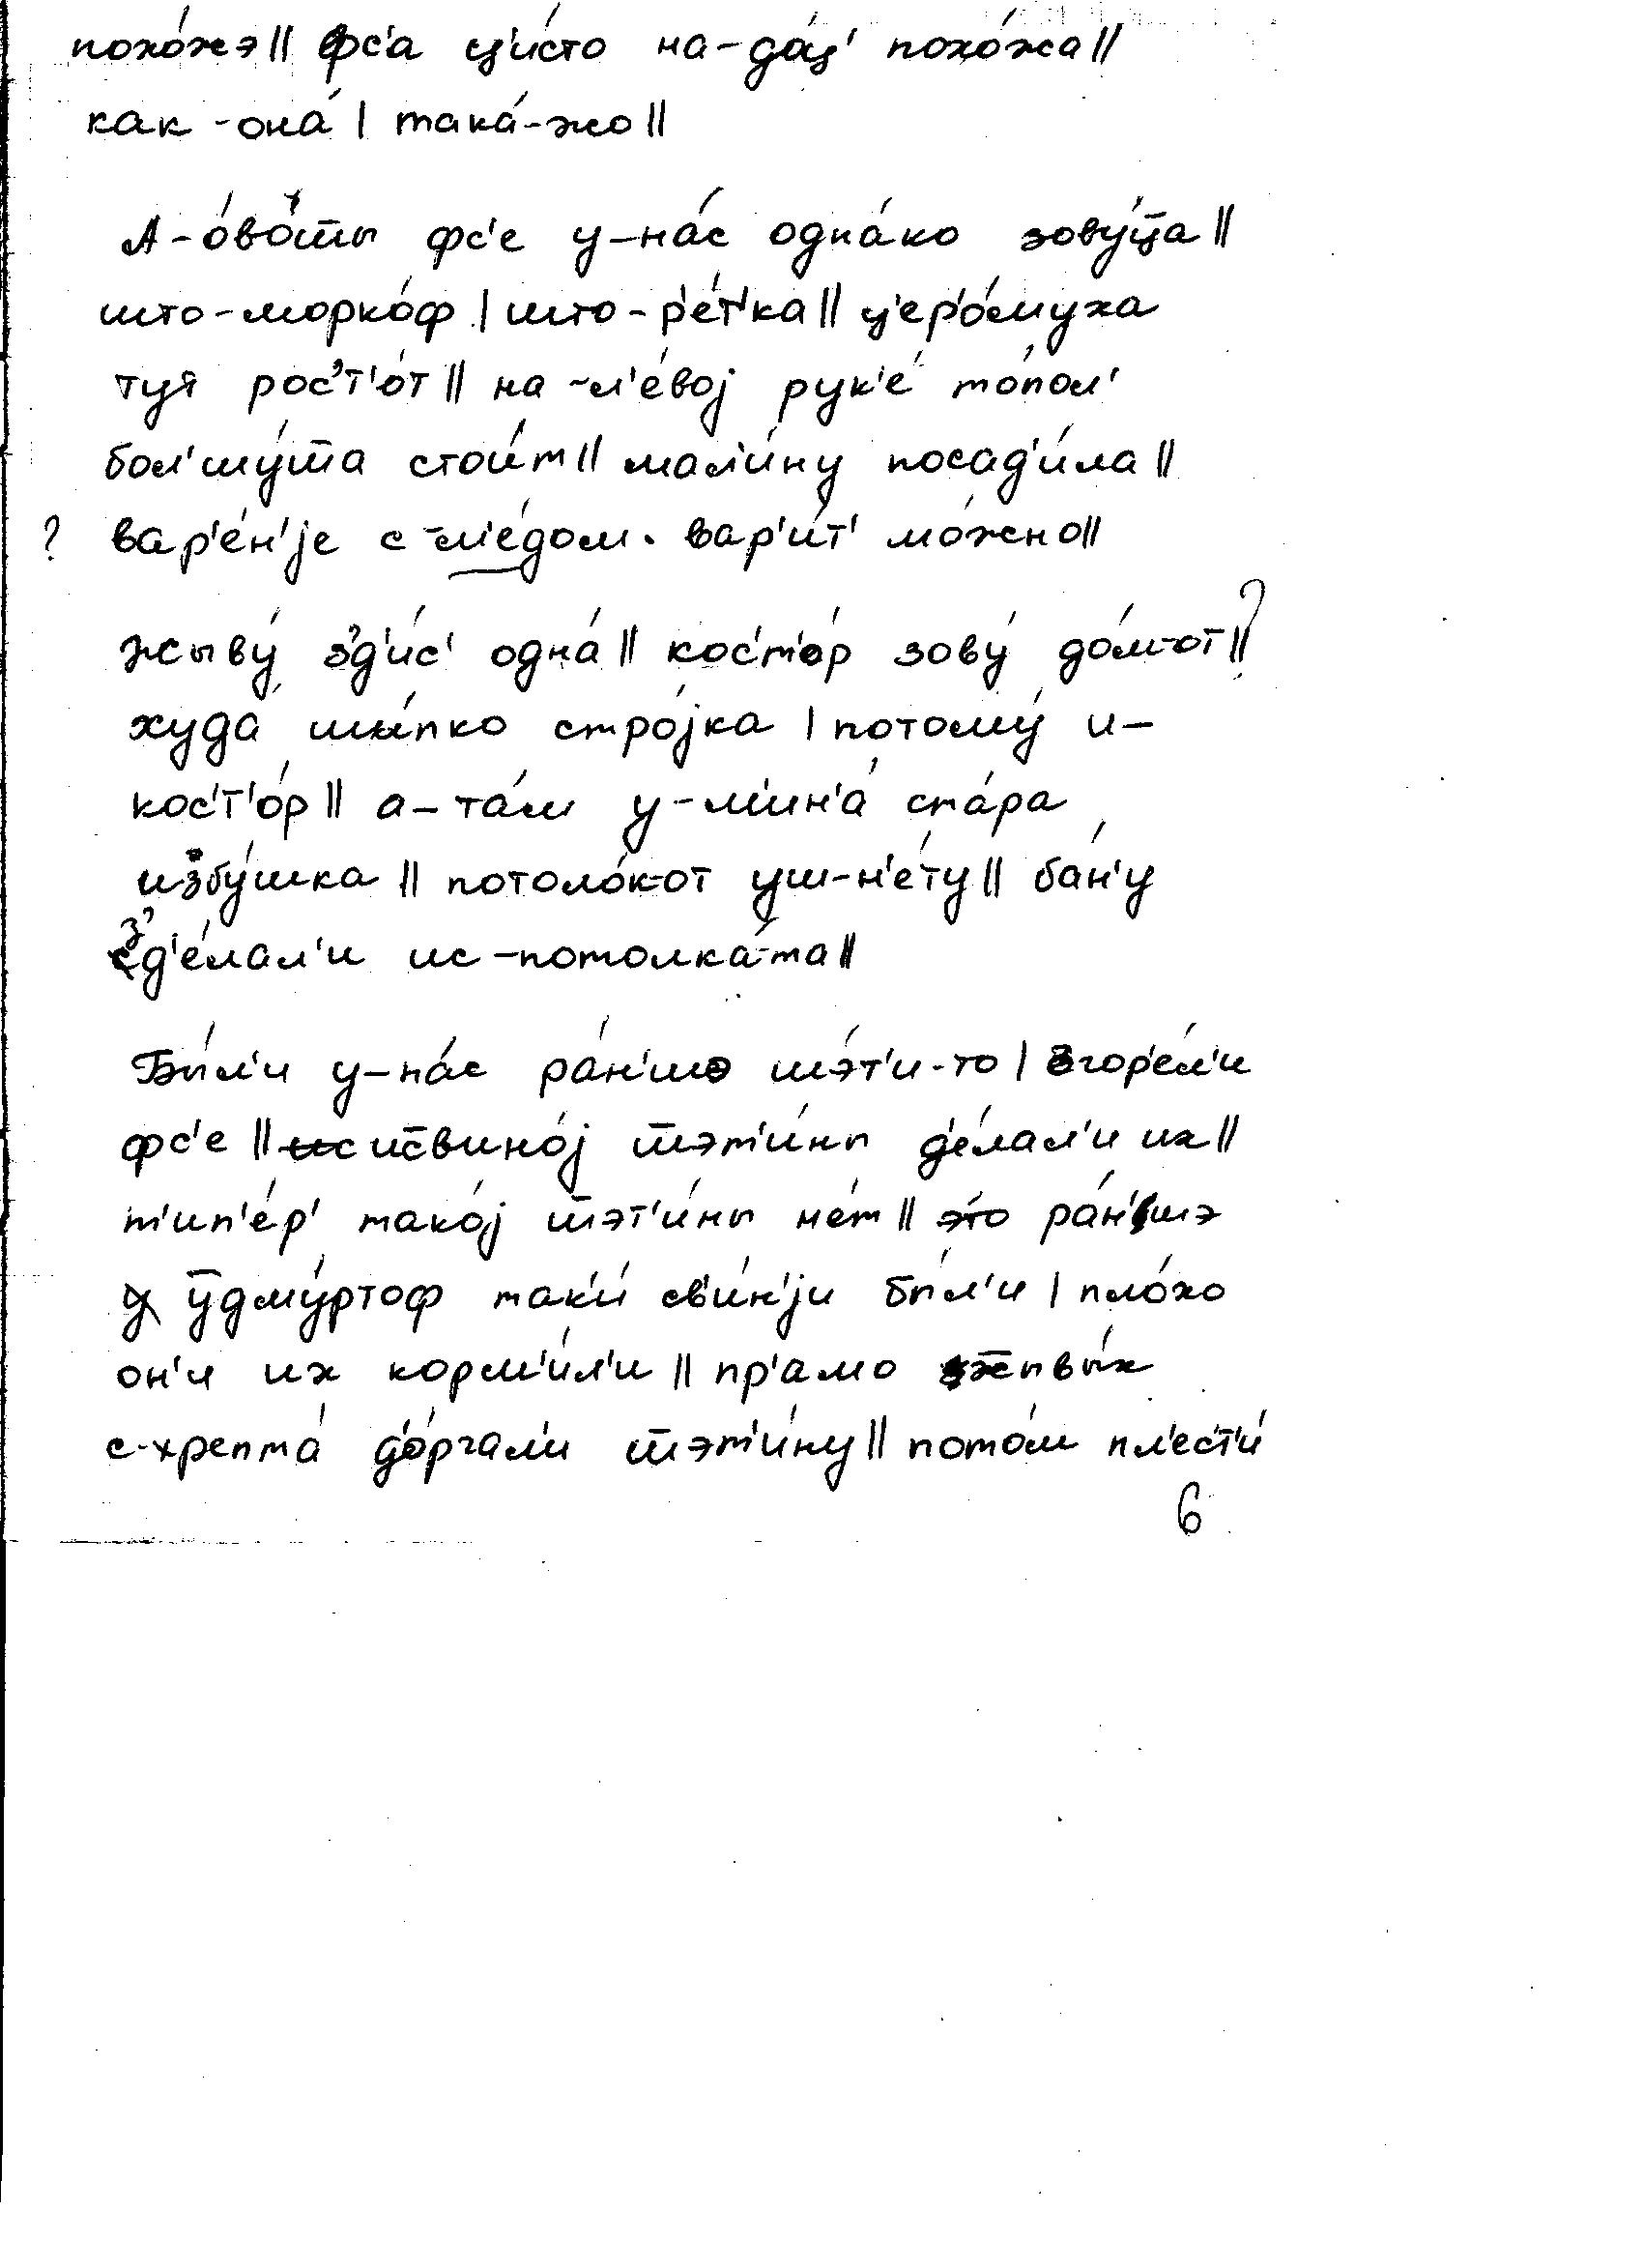 похо́жэ || фс'а ц'и́сто на-до́ц' похо́жа ||
как-она́ | така́-жо ||
А-о́вош̄ы фс'е у-на́с одна́ко зову́ц̄а ||
што-морко́ф | што-р'е́т'ка || ц'ер'о́муха
тут рос'т'о́т || на-л'е́вој рук'е́ то́пол'
бол'шу́ш̄а стои́т || мал'и́ну посад'и́ла ||
? вар'е́н'је с-м'е́дом. вар'и́т' мо́жно ||
жыву́ з'д'ис' одна́ || кос'т'о́р зову́ до́м-от || ?
худа́ шы́пко стро́јка | потому́ и-
кос'т'о́р || а-та́м у-м'ин'а́ ста́ра
избу́шка || потоло́к-от уш-н'е́ту || ба́н'у
з'д'е́лал'и ис-потолка́-та ||
Бы́л'и у-на́с ра́н'шэ шэ́т'и-то | згор'е́л'и
фс'е || ис̄вино́ј ш̄эт'и́ны д'е́лал'и их ||
т'ип'е́р' тако́ј ш̄эт'и́ны не́т || э́то ра́н'шэ
ӯдму́ртоф так'и́ св'и́н'ји бы́л'и | пло́хо
он'и их корм'и́л'и || пр'амо ж̄ывы́х
с-хрепта́ д'о́ргал'и ш̄эт'и́ну || пото́м пл'ес'т'и́
6